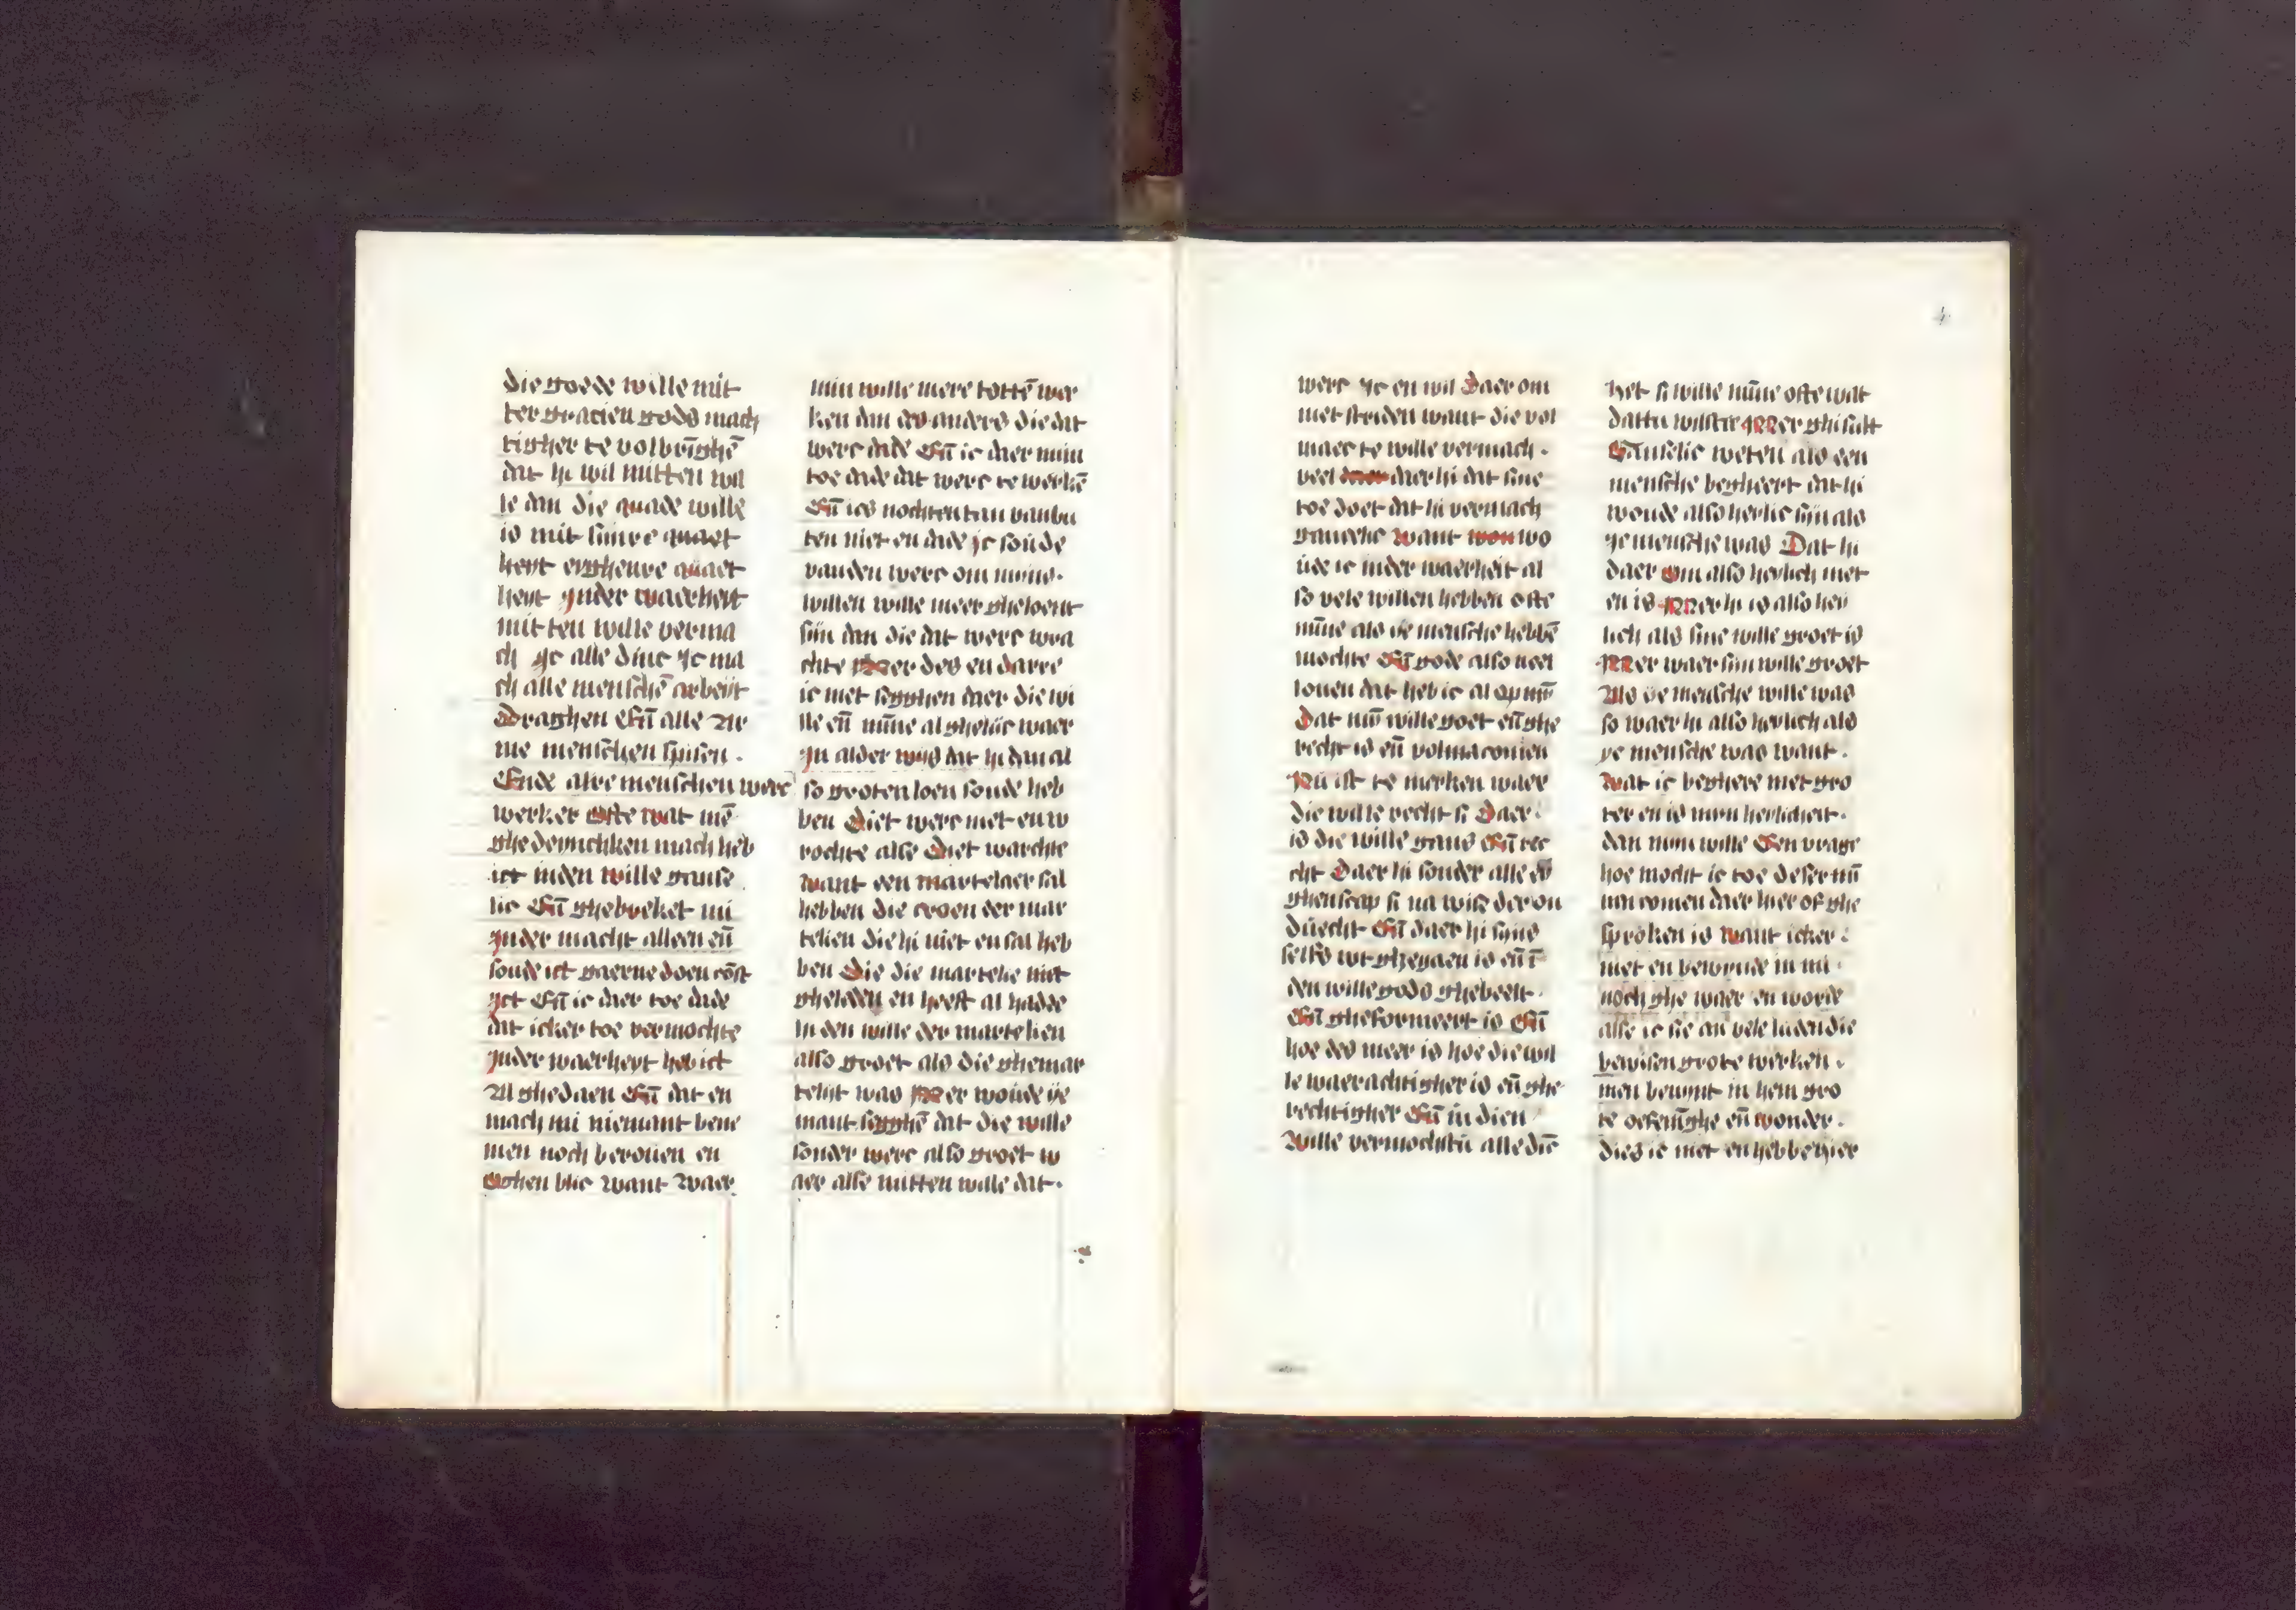 die goede wille mit
ter gracien gods mach
tigher te volbrīghē
dat hi wil mitten wil
le dan die quade wille
is mit sinre quaet
heyt ergheure quaet
heyt Jnder waerheit
mit ten wille verma
ch yc alle dinc yc ma
ch alle menschē arbeyt
draghen Eñ alle Ar
me menschen spisen .
Ende alre menschen werc
werker ofte wat mē
ghedeincken mach heb
ict inden wille ganse
lic Eñ ghebreket mi
Jnder macht alleen eñ
soude ict gaerne doen cōst
Jct Eñ ic daer toe dade
dat icker toe vermochte
Jnder waerheyt heb ict
Al ghedaen Eñ dat en
mach mi niemant bene
men noch berouen en
Oghen blic want waer
min wille mere tottē wer
ken dan des anders die dat
werc dade Eñ ic daer min
toe dade dat werc te werkē
Eñ ics nochten tan vanbu
ten niet en dade Jc soude
vanden werc om mijns.
willen wille meer gheloent
sijn dan die dat werc wra
chte Mer des en darre
ic niet segghen daer die wi
lle eñ mīne al ghelijc waer
Jn alder wijs dat hi dan al
so groten loen soude heb
ben Diet werc niet en w
rochte alse Diet warchte
want een martelaer sal
hebben die croen der mar
telien die hi niet en sal heb
ben Die die martelie niet
gheleden en heeft al hadde
In den wille der martelien
also groet als die ghemar
telijt was Mer woude ye
mant segghē dat die wille
sonder werc also groet w
aer alse mitten wille dat.
werc yc en wil Daer om
niet striden want die vol
maecte wille vermach .
veel daer hi dat sine
toe doet dat hi vermach
gancelic want wo
ude ic inder waerheit al
so vele willen hebben ofte
mīne als ye mensche hebbē
mochte Eñ gode also veel
louen dat heb ic al op mī
Dat mī wille goet eñ ghe
recht is eñ volmacomen
Nu ist te merken waer
die wille recht si Daer.
is die wille gans Eñ rec
cht Daer hi sonder alle ey
ghenscap si na wise der on
duecht Eñ daer hi sijns
selfs wt ghegaen is eñ ī
den wille gods ghebeelt.
Eñ gheformeert is Eñ
hoe des meer is hoe die wil
le waerachtigher is eñ ghe
rechtigher Eñ in dien
Wille vermochstu alle dīc
het si wille mīne ofte wat
dattu wilste Mer ghi sult
Ganselic weten als een
mensche begheert dat hi
woude also heylic sijn als
ye mensche was Dat hi
daer om also heylich niet
en is Mer hi is also hey
lich als sine wille groet is
Mer waer sijn wille groet
Als ye mensche wille was
so waer hi also heylich als
ye mensche was want .
wat ic beghere niet gro
ter en is mijn heylicheit.
dan mijn wille Een vrage
hoe mocht ic toe deser mī
nen comen daer hier of ghe
sproken is want icker
niet en bewynde in mi
noch ghe waer en worde
alse ic sie an vele luden die
bewisen grote werken .
men bewynt in hem gro
te oefeninghe eñ wonder .
dies ic niet en hebbe hier